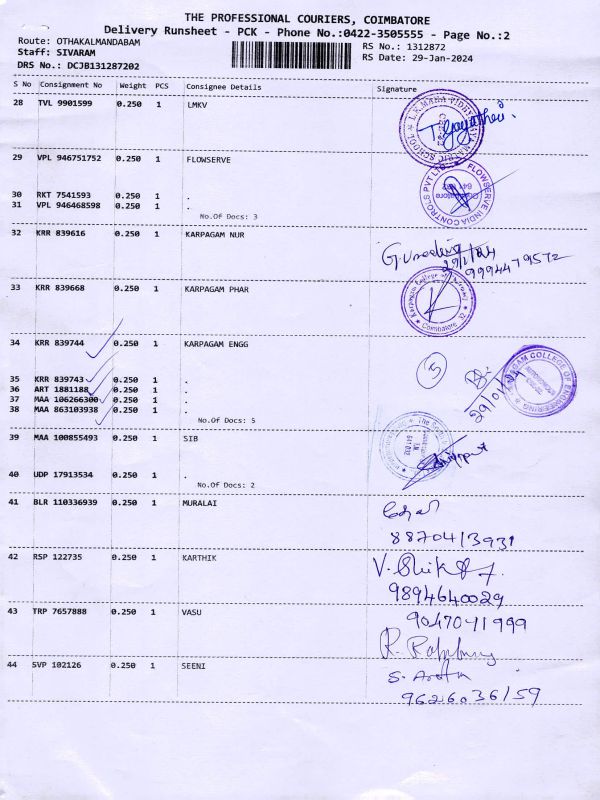 THE PROFESSIONAL COURIERS, COIMBATORE
Delivery Runsheet - PCK - Phone No.:0422-3505555 - Page No.:2
Route: OTHAKALMANDABAM RS No.: 1312872
Staff: SIVARAM RS Date: 29-Jan-2024
DRS No.: DCJB131287202
S No Consignment No Weight PCS Consignee Details Signature
28 TVL 9901599 0.250 1 LMKV
29 VPL 946751752 0.250 1 FLOWSERVE
FLOWSERVE INDIA CONTROLS PVT LTD
30 RKT 7541593 0.250 1 .
31 VPL 946468598 0.250 1 .
No.Of Docs: 3
32 KRR 839616 0.250 1 KARPAGAM NUR
29/1/24
9994479572
33 KRR 839668 0.250 1 KARPAGAM PHAR
Coimbatore
34 KRR 839744 0.250 1 KARPAGAM ENGG
5
29/01/24
KARPAGAM COLLEGE OF ENGINEERING
35 KRR 839743 0.250 1 .
36 ART 1881188 0.250 1 .
37 MAA 106266300 0.250 1 .
38 MAA 863103938 0.250 1 .
No.Of Docs: 5
39 MAA 100855493 0.250 1 SIB
40 UDP 17913534 0.250 1 .
No.Of Docs: 2
41 BLR 110336939 0.250 1 MURALAI
8870413931
42 RSP 122735 0.250 1 KARTHIK
9894640029
43 TRP 7657888 0.250 1 VASU
9047041999
44 SVP 102126 0.250 1 SEENI
9626036159